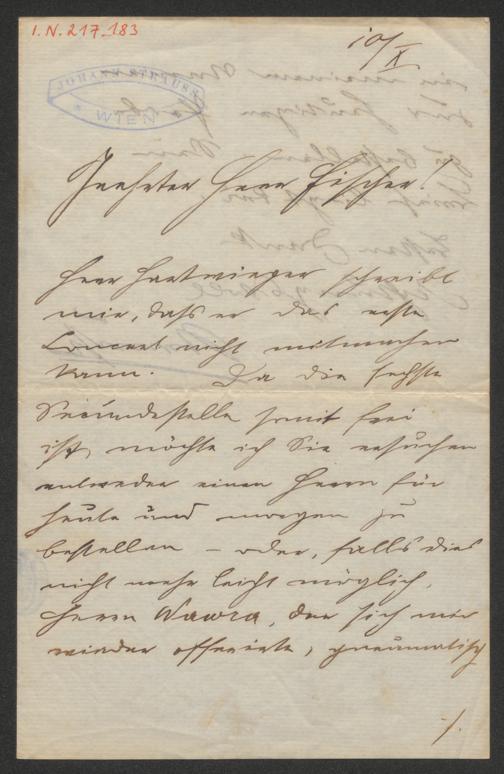 I.N. 217.183
10/X
JOHANN STRAUSS
* WIEN *
Geehrter Herr Fischer!
Herr Hartwieger schreibt
mir, dass er das erste
Concert nicht mitmachen
kann. Da die sechste
Secundestelle somit frei
ist, möchte ich Sie ersuchen
entweder einen Herrn für
heute und morgen zu
bestellen – oder, falls dies
nicht mehr leicht möglich,
Herrn Wawra, der sich mir
wieder offerirte, pneumatisch
./.